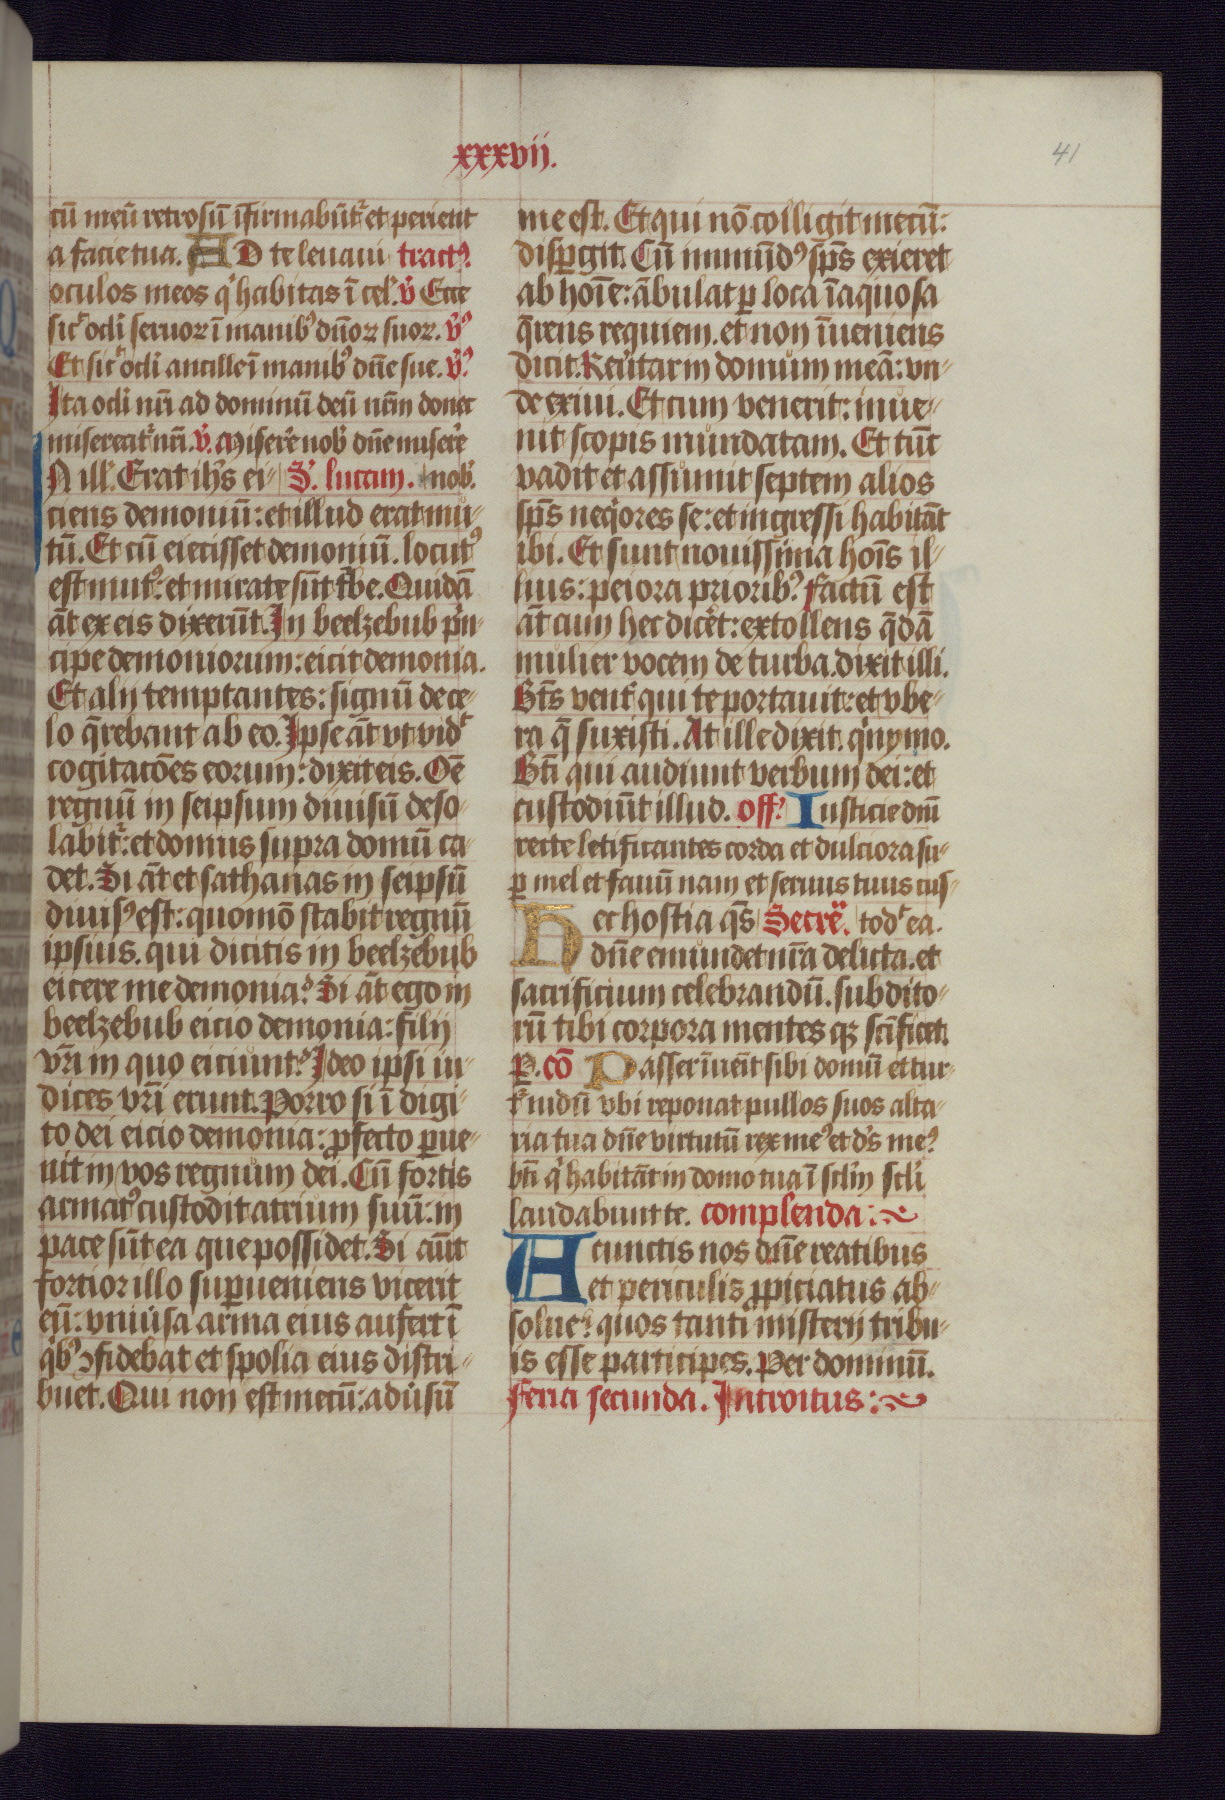 xxxvii.
41
cū meū retrorsū īfirmabūt᷑ et perient
a facie tua. AD te leuaui tract⁹.
oculos meos q̇ habitas ī cel᷑. v̄ Ecce
sic᷑ ocl̄i seruoꝝ ī manib⁹ dn̄oꝝ suoꝝ. v̄⁹
Et sic᷑ ocl̄i ancille ī manib⁹ dn̄e sue. v̄⁹
Ita ocl̄i nr̄i ad dominū deū nr̄m donec
misereat᷑ nr̄i. v̄. Miserere nob᷑ dn̄e miserere
N ill᷑. Erat ih̄s ei- S᷑. lucam. nob᷑.
ciens demoniū: et illud erat mu-
tū. Et cū eiecisset demoniū. locut⁹
est mut⁹: et mirate sūt t᷑be. Quidā
āt ex eis dixerūt. In beelzebub prin-
cipe demoniorum: eicit demonia.
Et alij temptantes: signū de ce-
lo q̄rebant ab eo. Ipse āt vt vid᷑
cogitacōes eorum: dixit eis. Om̄e
regnū in seipsum diuisū deso-
labit᷑: et domus supra domū ca-
det. Si āt et sathanas in seipsū
diuis⁹ est: quomō stabit regnū
ipsius. qui dicitis in beelzebub
eicere me demonia? Si āt ego in
beelzebub eicio demonia: filij
vr̄i in quo eiciunt? Ideo ipsi iu-
dices vr̄i erunt. Porro si ī digi-
to dei eicio demonia: ꝓfecto ꝑue-
nit in vos regnum dei. Cū fortis
armat⁹ custodit atrium suū: in
pace sūt ea que possidet. Si aūt
fortior illo suꝑueniens vicerit
eū: vniūsa arma eius aufert ī
q̇b⁹ ꝯfidebat et spolia eius distri-
buet. Qui non est mecū: adūsū
me est. Et qui nō colligit mecū:
disꝑgit. Cū inmūd⁹ sp̄s exieret
ab hoīe: ābulat ꝑ loca īaquosa
q̄rens requiem. et non īueniens
dicit. Reūtar in domum meā: vn-
de exiui. Et cum venerit: inue-
nit scopis mundatam. Et tūc
vadit et assumit septem alios
sp̄s neq̇ores se: et ingressi habitāt
ibi. Et sunt nouissima hoīs il-
lius: peiora priorib⁹. Factū est
āt cum hec dicēt: extollens q̄dā
mulier vocem de turba. dixit illi.
Bt̄s vent᷑ qui te portauit: et vbe-
ra q̄ suxisti. At ille dixit. q̇nymo.
Bt̄i qui audiunt verbum dei: et
custodiūt illud. off⁹. Iusticie dn̄i
recte letificantes corda et dulciora su-
ꝑ mel et fauū nam et seruus tuus cus-
Hec hostia q̄s Secre᷑. tod᷑ ea.
dn̄e emundet nr̄a delicta. et
sacrificium celebrandū. subdito-
rū tibi corpora mentes qꝫ sc̄ificet.
P. cō Passer īuēit sibi domū et tur-
t᷑ nidū vbi reponat pullos suos alta-
ria tua dn̄e virtutū rex me⁹ et d̄s me⁹
bt̄i q̇ habitāt in domo tua ī scl̄m scl̄i
laudabunt te. complenda:
A cunctis nos dn̄e reatibus
et periculis ꝓpiciatus ab-
solue: quos tanti misterij tribu-
is esse participes. Per dominū.
Feria secunda. Introitus: